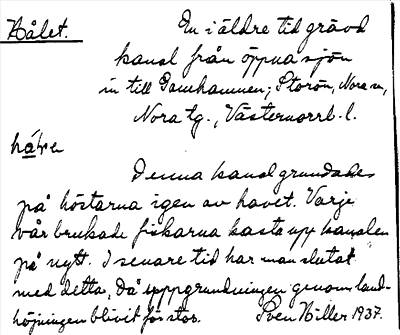 Hålet. En i äldre tid grävd
kanal från öppna sjön
in till Gamhamnen, Storön, Nora sn,
Nora tg., Västernorrl. l.
Denna kanal grundades
på höstarna igen av havet. Varje
vår brukade fiskarna kasta upp kanalen
på nytt. I senare tid har man slutat
med detta, då uppgrundningen genom land-
höjningen blivit för stor. Sven Hiller 1937.